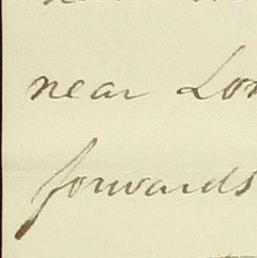 near Lon
forwards